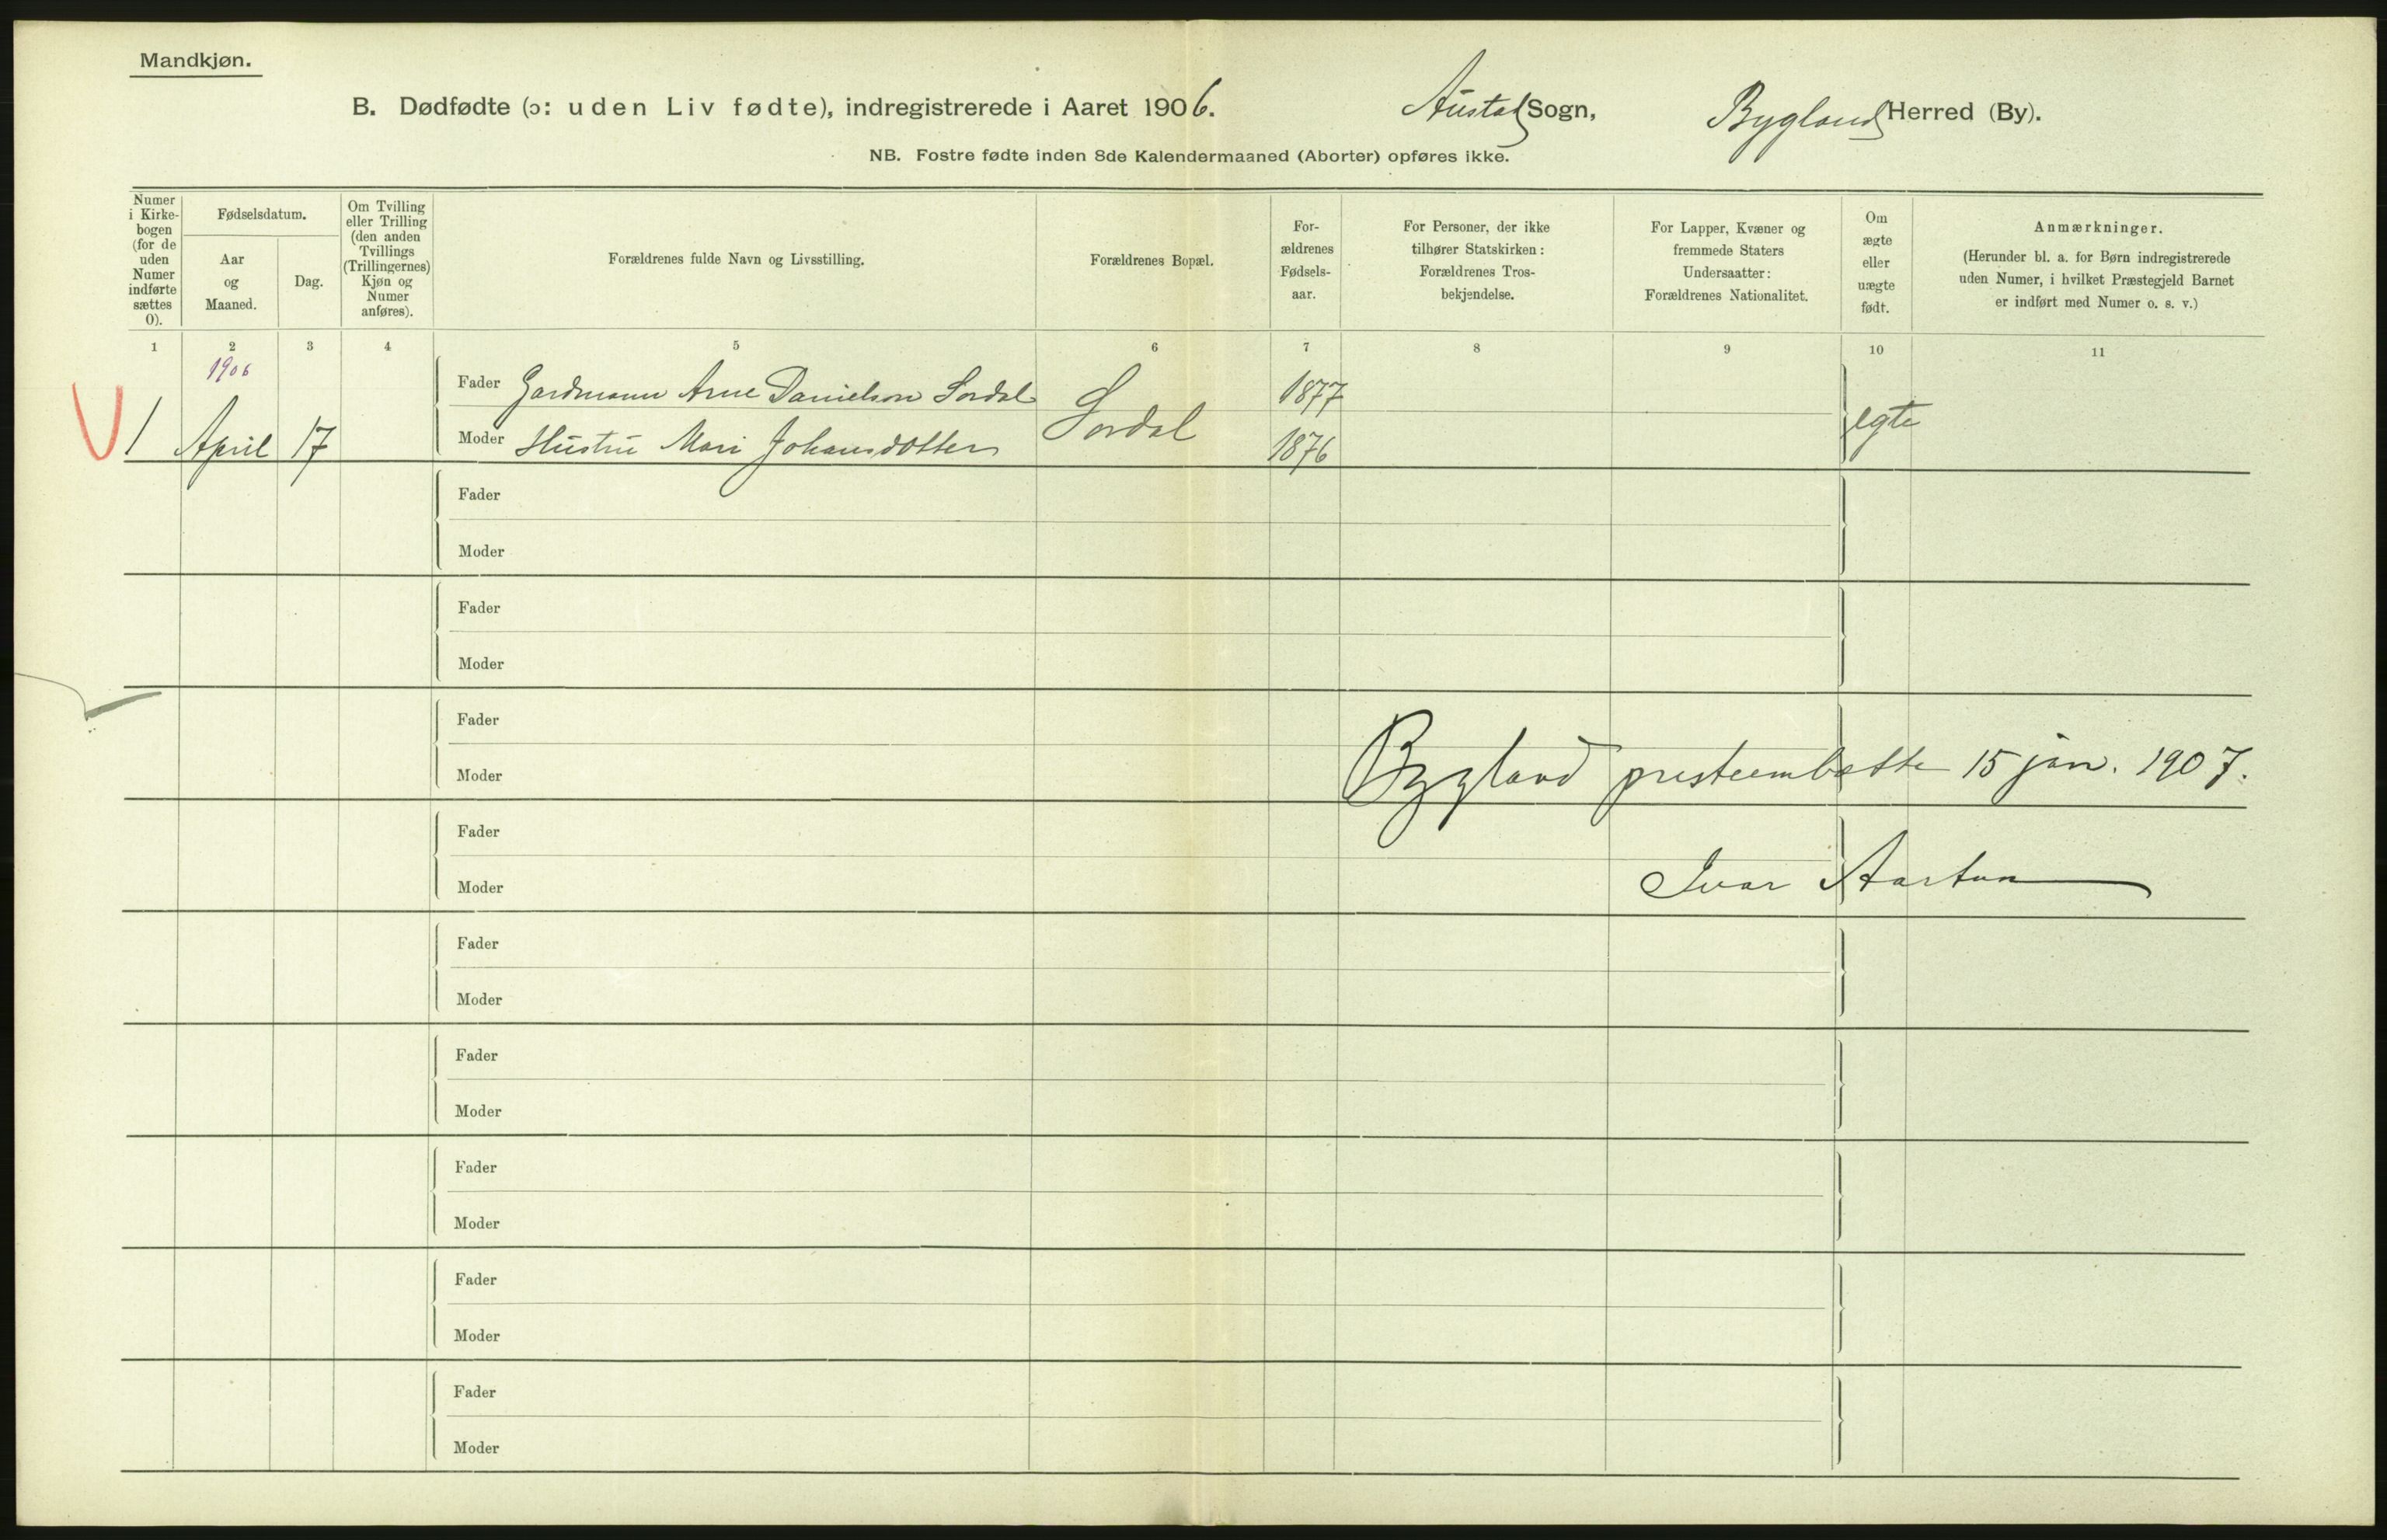 Mandkjøn.
B. Dødfødte (ɔ: uden Liv fødte), indregistrerede i Aaret 1906. Austad Sogn, Bygland Herred (By).
NB. Fostre fødte inden 8de Kalendermaaned (Aborter) opføres ikke.
Numer i Kirke-
bogen
(for de
uden
Numer
indførte
sættes
0).
Fødselsdatum.
Aar
og
Maaned.
Dag.
Om Tvilling
eller Trilling
(den anden
Tvillings
(Trillingernes)
Kjøn og
Numer
anføres).
Forældrenes fulde Navn og Livsstilling.
Forældrenes Bopæl.
For-
ældrenes
Fødsels-
aar.
For Personer, der ikke
tilhører Statskirken:
Forældrenes Tros-
bekjendelse.
For Lapper, Kvæner og
fremmede Staters
Undersaatter:
Forældrenes Nationalitet.
Om
ægte
eller
uægte
født.
Anmærkninger.
(Herunder bl. a. for Børn indregistrerede
uden Numer, i hvilket Præstegjeld Barnet
er indført med Numer o. s. v.)
1 2 3 4 5 6 7 8 9 10 11
1906
Fader Gardmann Arne Danielson Sordal 1877
1 April 17 Sordal egte
Moder Hustru Mari Johansdotter 1876
Fader
Moder
Fader
Moder
Fader
Moder Bygland prestembætte 15 jan. 1907.
Fader
Moder Ivar Aartun
Fader
Moder
Fader
Moder
Fader
Moder
Fader
Moder
Fader
Moder